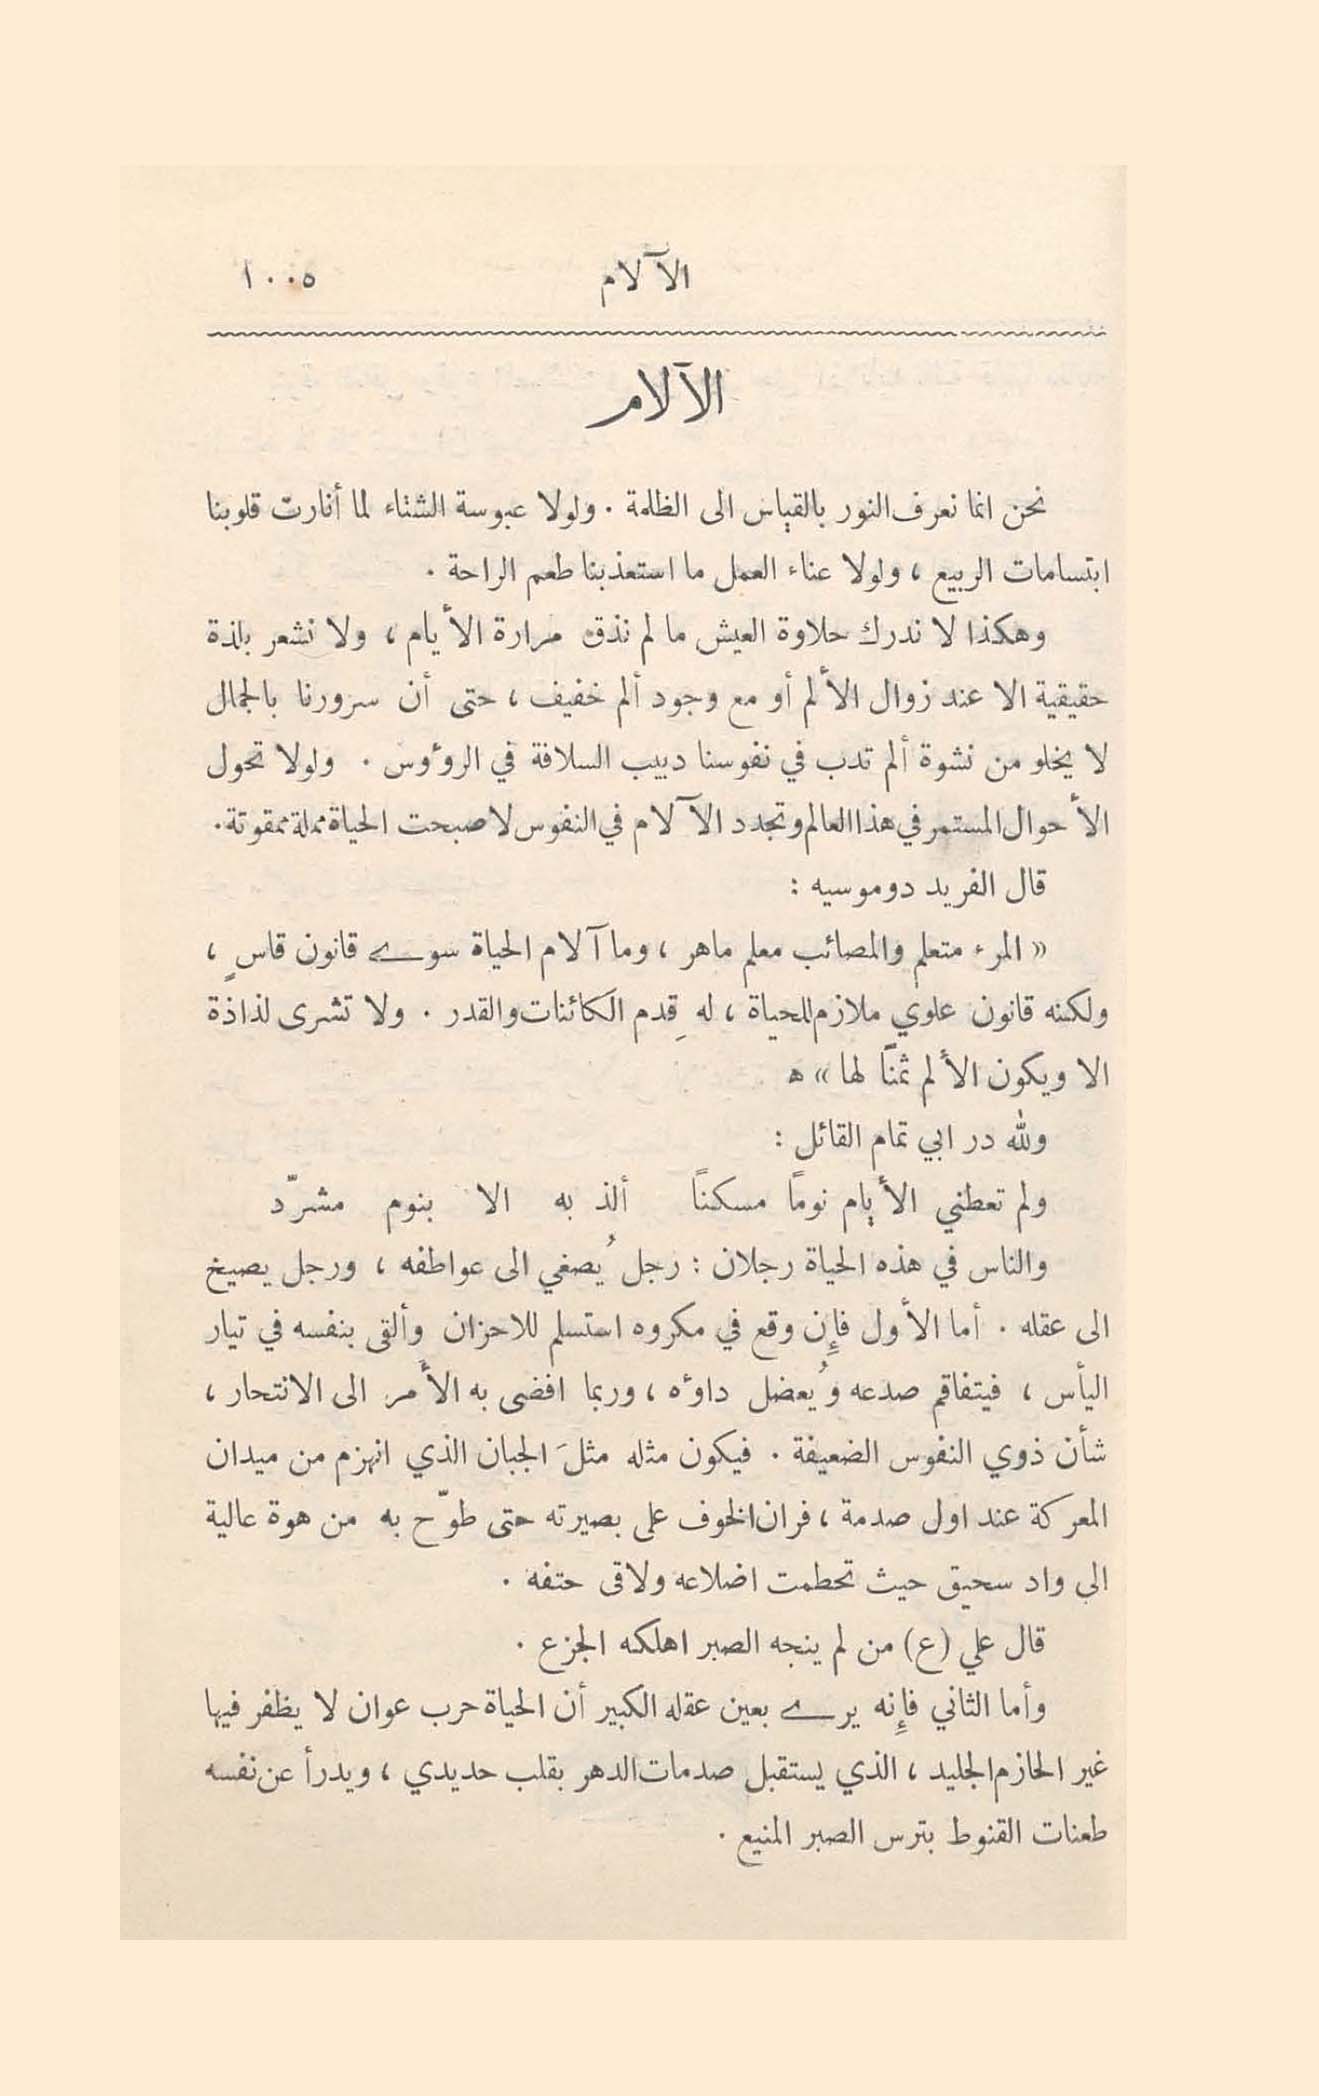 الآلام ١٠٠٥
الآلام
نحن انما نعرف النور بالقياس الى الظلمة . ولولا عبوسة الشتاء لما أنارت قلوبنا
ابتسامات الربيع ، ولولا عناء العمل ما استعذبنا طعم الراحة .
وهكذا لا ندرك حلاوة العيش ما لم نذق مرارة الأيام ، ولا نشعر بلذة
حقيقية الا عند زوال الألم أو مع وجود ألم خفيف ، حتى أن سرورنا بالجمال
لا يخلو من نشوة ألم تدب في نفوسنا دبيب السلافة في الروؤس . ولولا تحول
الأحوال المستمر في هذا العالم وتجدد الآلام في النفوس لاصبحت الحياة مملة ممقوتة.
قال الفريد دوموسيه :
« المرء متعلم والمصائب معلم ماهر ، وما آلام الحياة سوى قانون قاسٍ ،
ولكنه قانون علوي ملازم للحياة ، له قِدم الكائنات والقدر . ولا تشرى لذاذة
الا ويكون الألم ثمنًا لها » ه
ولله در ابي تمام القائل :
ولم تعطني الأيام نومًا مسكنًا ألذ به الا بنوم مشرّد
والناس في هذه الحياة رجلان : رجل يُصغي الى عواطفه ، ورجل يصيخ
الى عقله . أما الأول فإِن وقع في مكروه استسلم للاحزان وألقى بنفسه في تيار
اليأس ، فيتفاقم صدعه ويُعضل داوءه ، وربما افضى به الأمر الى الانتحار ،
شأن ذوي النفوس الضعيفة . فيكون مثله مثلَ الجبان الذي انهزم من ميدان
المعركة عند اول صدمة ، فران الخوف على بصيرته حتى طوّح به من هوة عالية
الى واد سحيق حيث تحطمت اضلاعه ولاقى حتفه .
قال علي (ع) من لم ينجه الصبر اهلكه الجزع .
وأما الثاني فإِنه يرى بعين عقله الكبير أن الحياة حرب عوان لا يظفر فيها
غير الحازم الجليد ، الذي يستقبل صدمات الدهر بقلب حديدي ، ويدرأ عن نفسه
طعنات القنوط بترس الصبر المنيع .